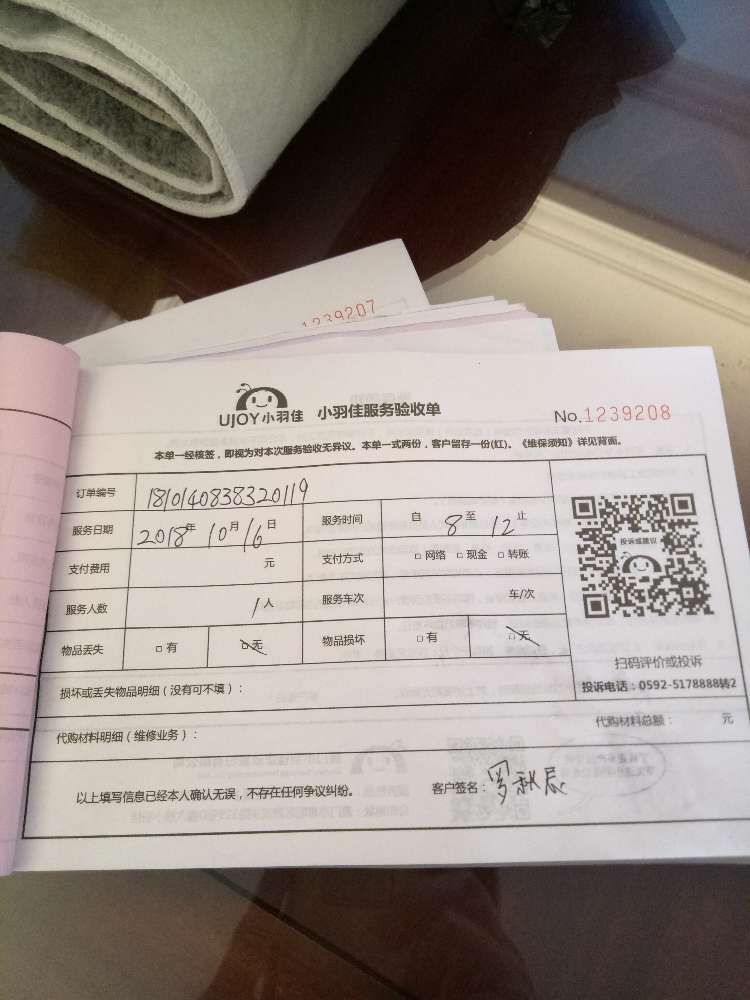 1239207
UJOY小羽佳 小羽佳服务验收单 No.1239208
本单一经核签，即视为对本次服务验收无异议。本单一式两份，客户留存一份(红)。《维保须知》详见背面。
订单编号 1810140838320119
服务日期 2018年10月16日 服务时间 自8至12止
支付费用 元 支付方式 □网络 □现金 □转账
投诉或建议
服务人数 1人 服务车次 车/次
物品丢失 □有 □无 物品损坏 □有 □无
扫码评价或投诉
投诉电话：0592-5178888转2
损坏或丢失物品明细（没有可不填）：
代购材料明细（维修业务）： 代购材料总额： 元
以上填写信息已经本人确认无误，不存在任何争议纠纷。 客户签名：罗秋辰